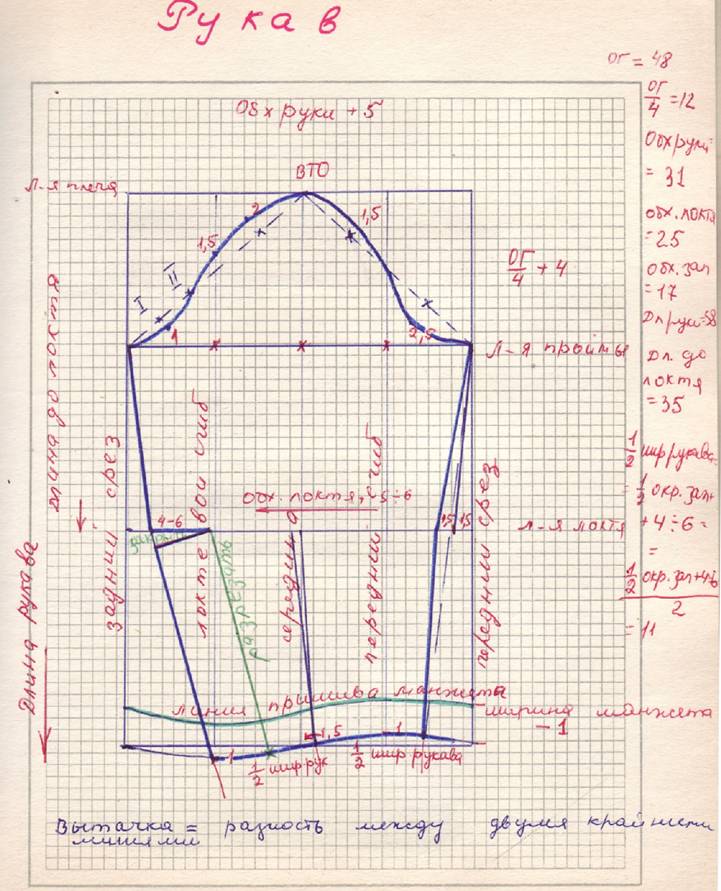 Рукав
ОГ = 48
ОГ/4 = 12
Обх руки + 5
Обх руки
= 31
ВТО
Л-я плеча
2
1,5
1,5
обх. локтя
= 25
I
II
ОГ/4 + 4
обх. зап
= 17
Дл руки = 58
1
2,5
Л-я проймы
Дл. до
локтя
= 35
длина до локтя
задний срез
локтевой сгиб
середина
передний сгиб
передний срез
1/2 шир рукава
обх. локтя, +5÷6
= 1/2 окр. зап +
4-6
1,5
1,5
л-я локтя
+ 4 ÷ 6 =
закрыть
разрезать
=
1/2 окр. зап + 4÷6
2
= 11
Длина рукава
линия пришива манжета
ширина манжета
- 1
1
1,5
1
1/2 шир рук
1/2 шир рукава
Вытачка = разность между двумя крайними
линиями